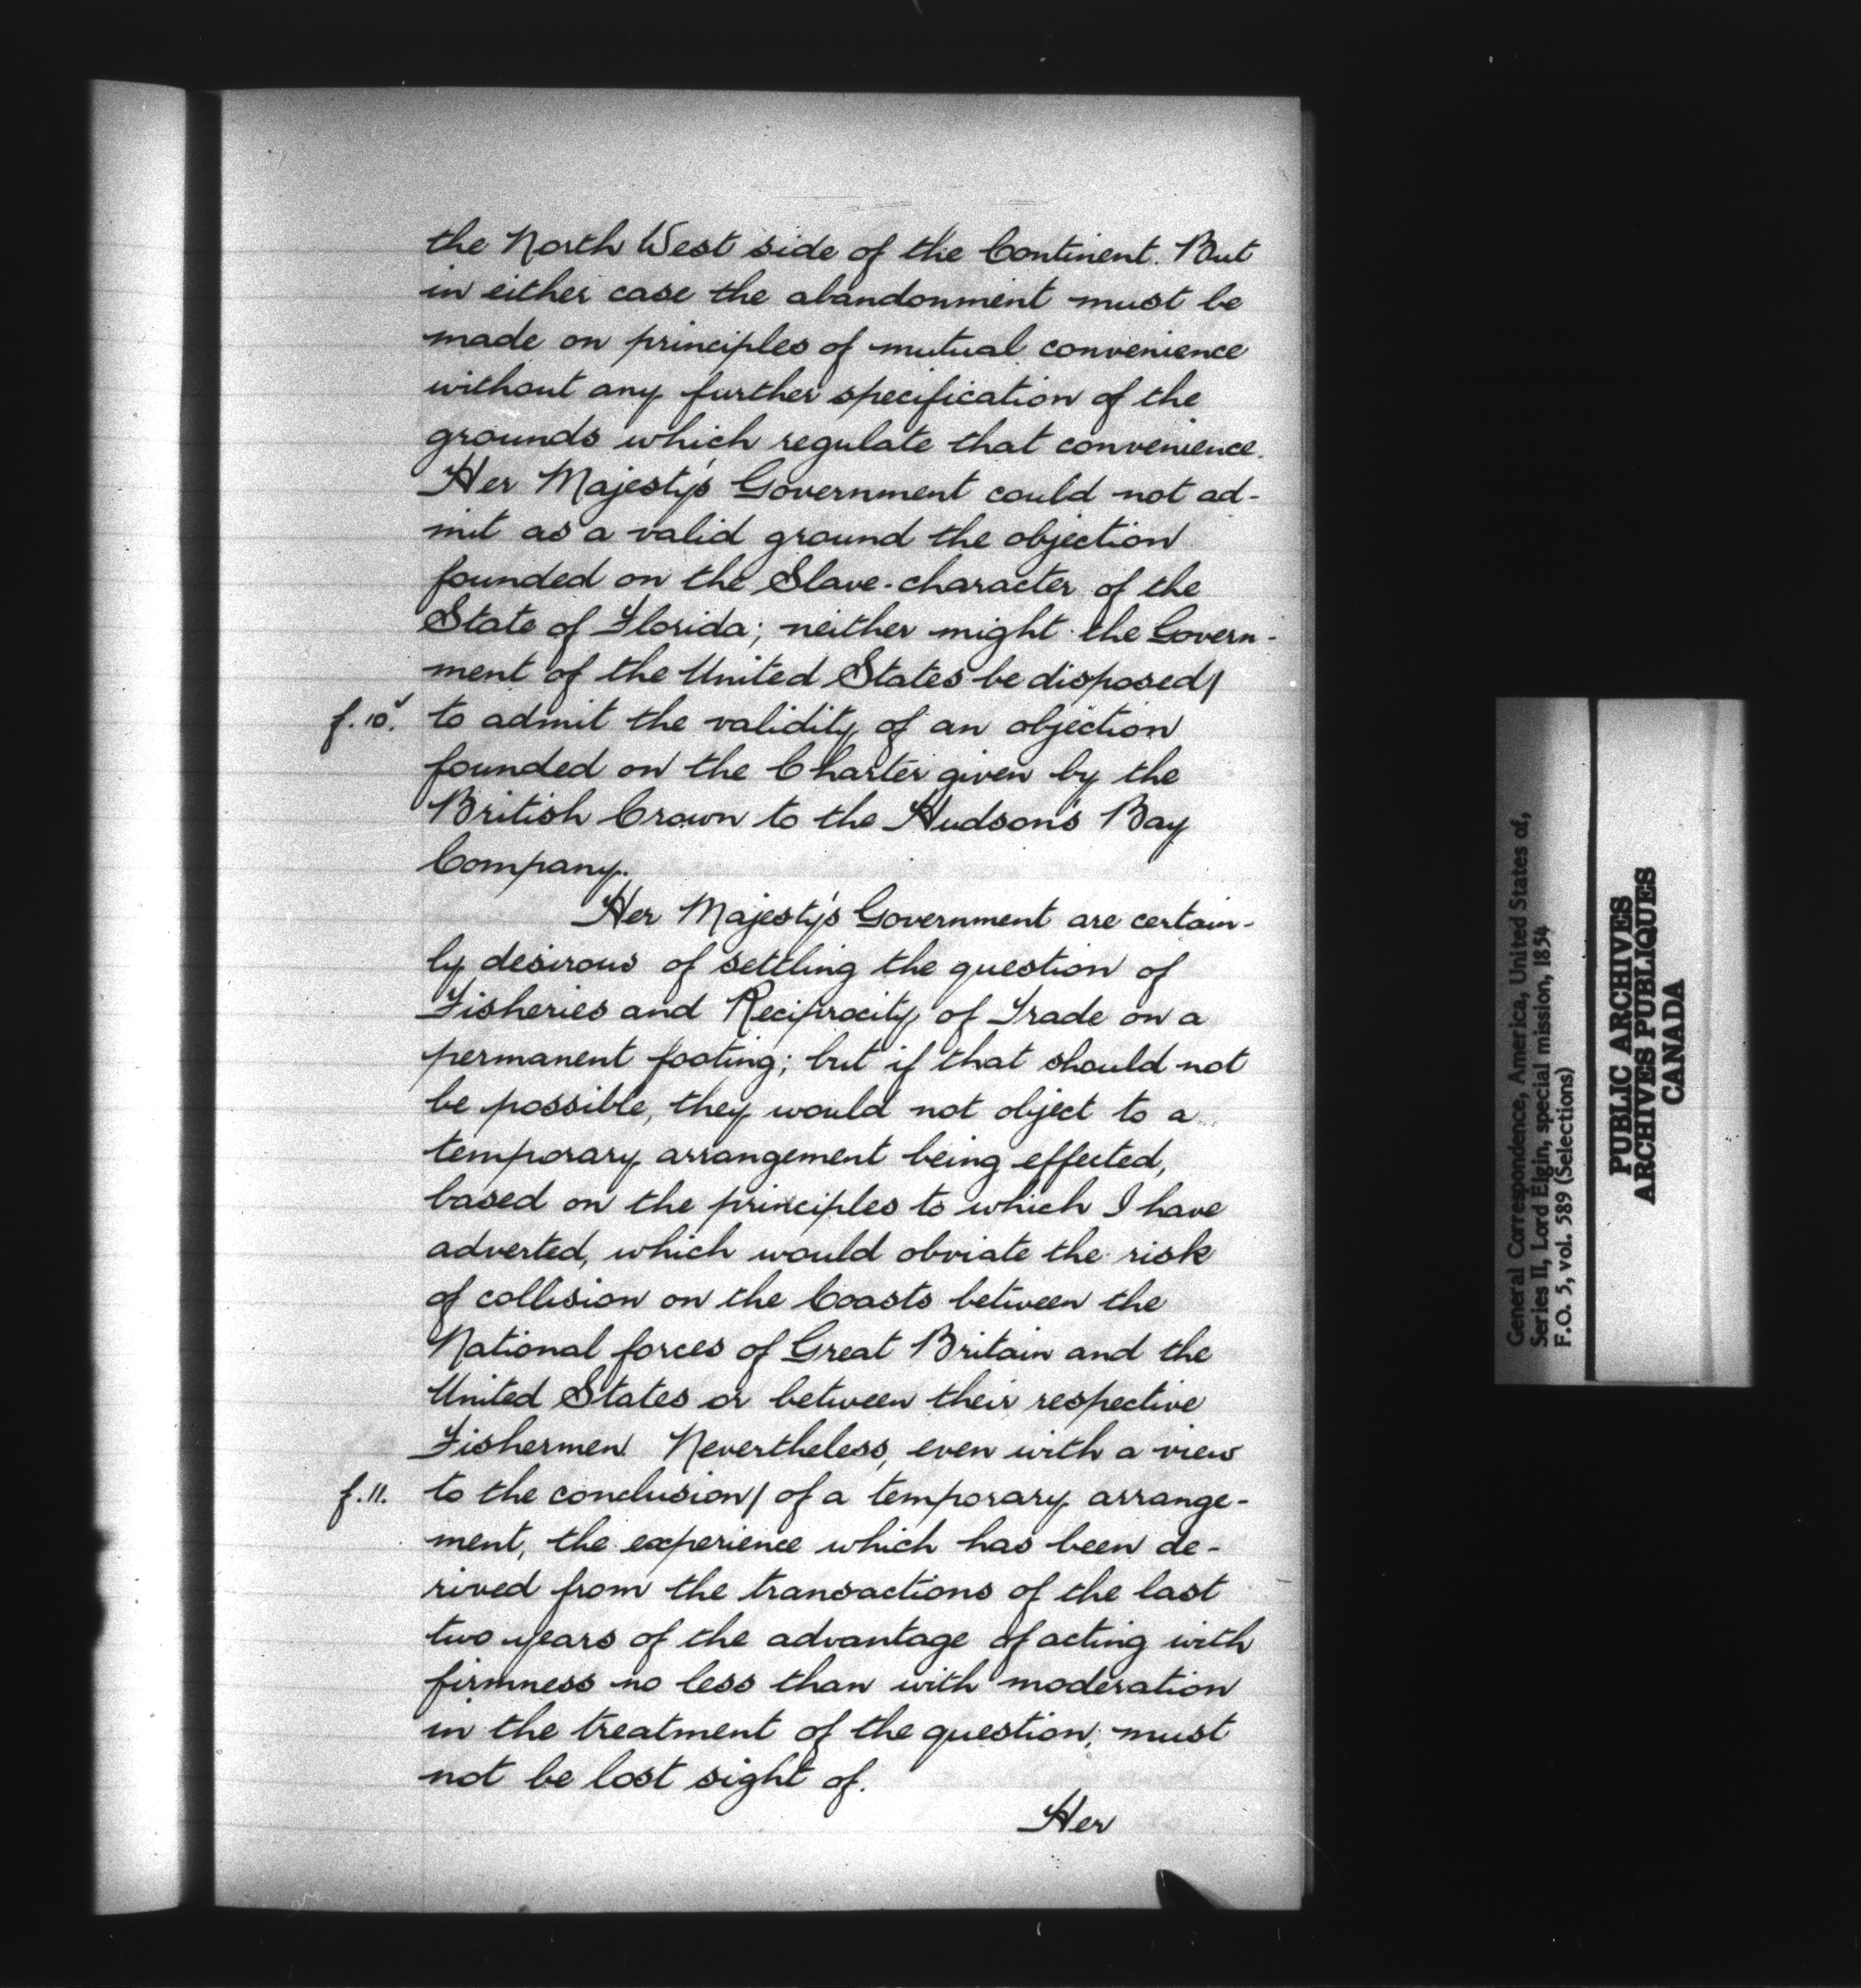 the North West side of the Continent. But
in either case the abandonment must be
made on principles of mutual convenience
without any further specification of the
grounds which regulate that convenience.
Her Majesty's Government could not ad-
mit as a valid ground the objection
founded on the Slave-character of the
State of Florida; neither might the Govern-
ment of the United States be disposed/
f. 10v. to admit the validity of an objection
founded on the Charter given by the
British Crown to the Hudson's Bay
Company.
Her Majesty's Government are certain-
ly desirous of settling the question of
Fisheries and Reciprocity of Trade on a
permanent footing; but if that should not
be possible, they would not object to a
temporary arrangement being effected,
based on the principles to which I have
adverted, which would obviate the risk
of collision on the Coasts between the
National forces of Great Britain and the
United States or between their respective
Fishermen. Nevertheless, even with a view
f. 11. to the conclusion/ of a temporary arrange-
ment, the experience which has been de-
rived from the transactions of the last
two years of the advantage of acting with
firmness no less than with moderation
in the treatment of the question, must
not be lost sight of.
Her
General Correspondence, America, United States of,
Series II, Lord Elgin, special mission, 1854
F.O. 5, vol. 589 (Selections)
PUBLIC ARCHIVES
ARCHIVES PUBLIQUES
CANADA